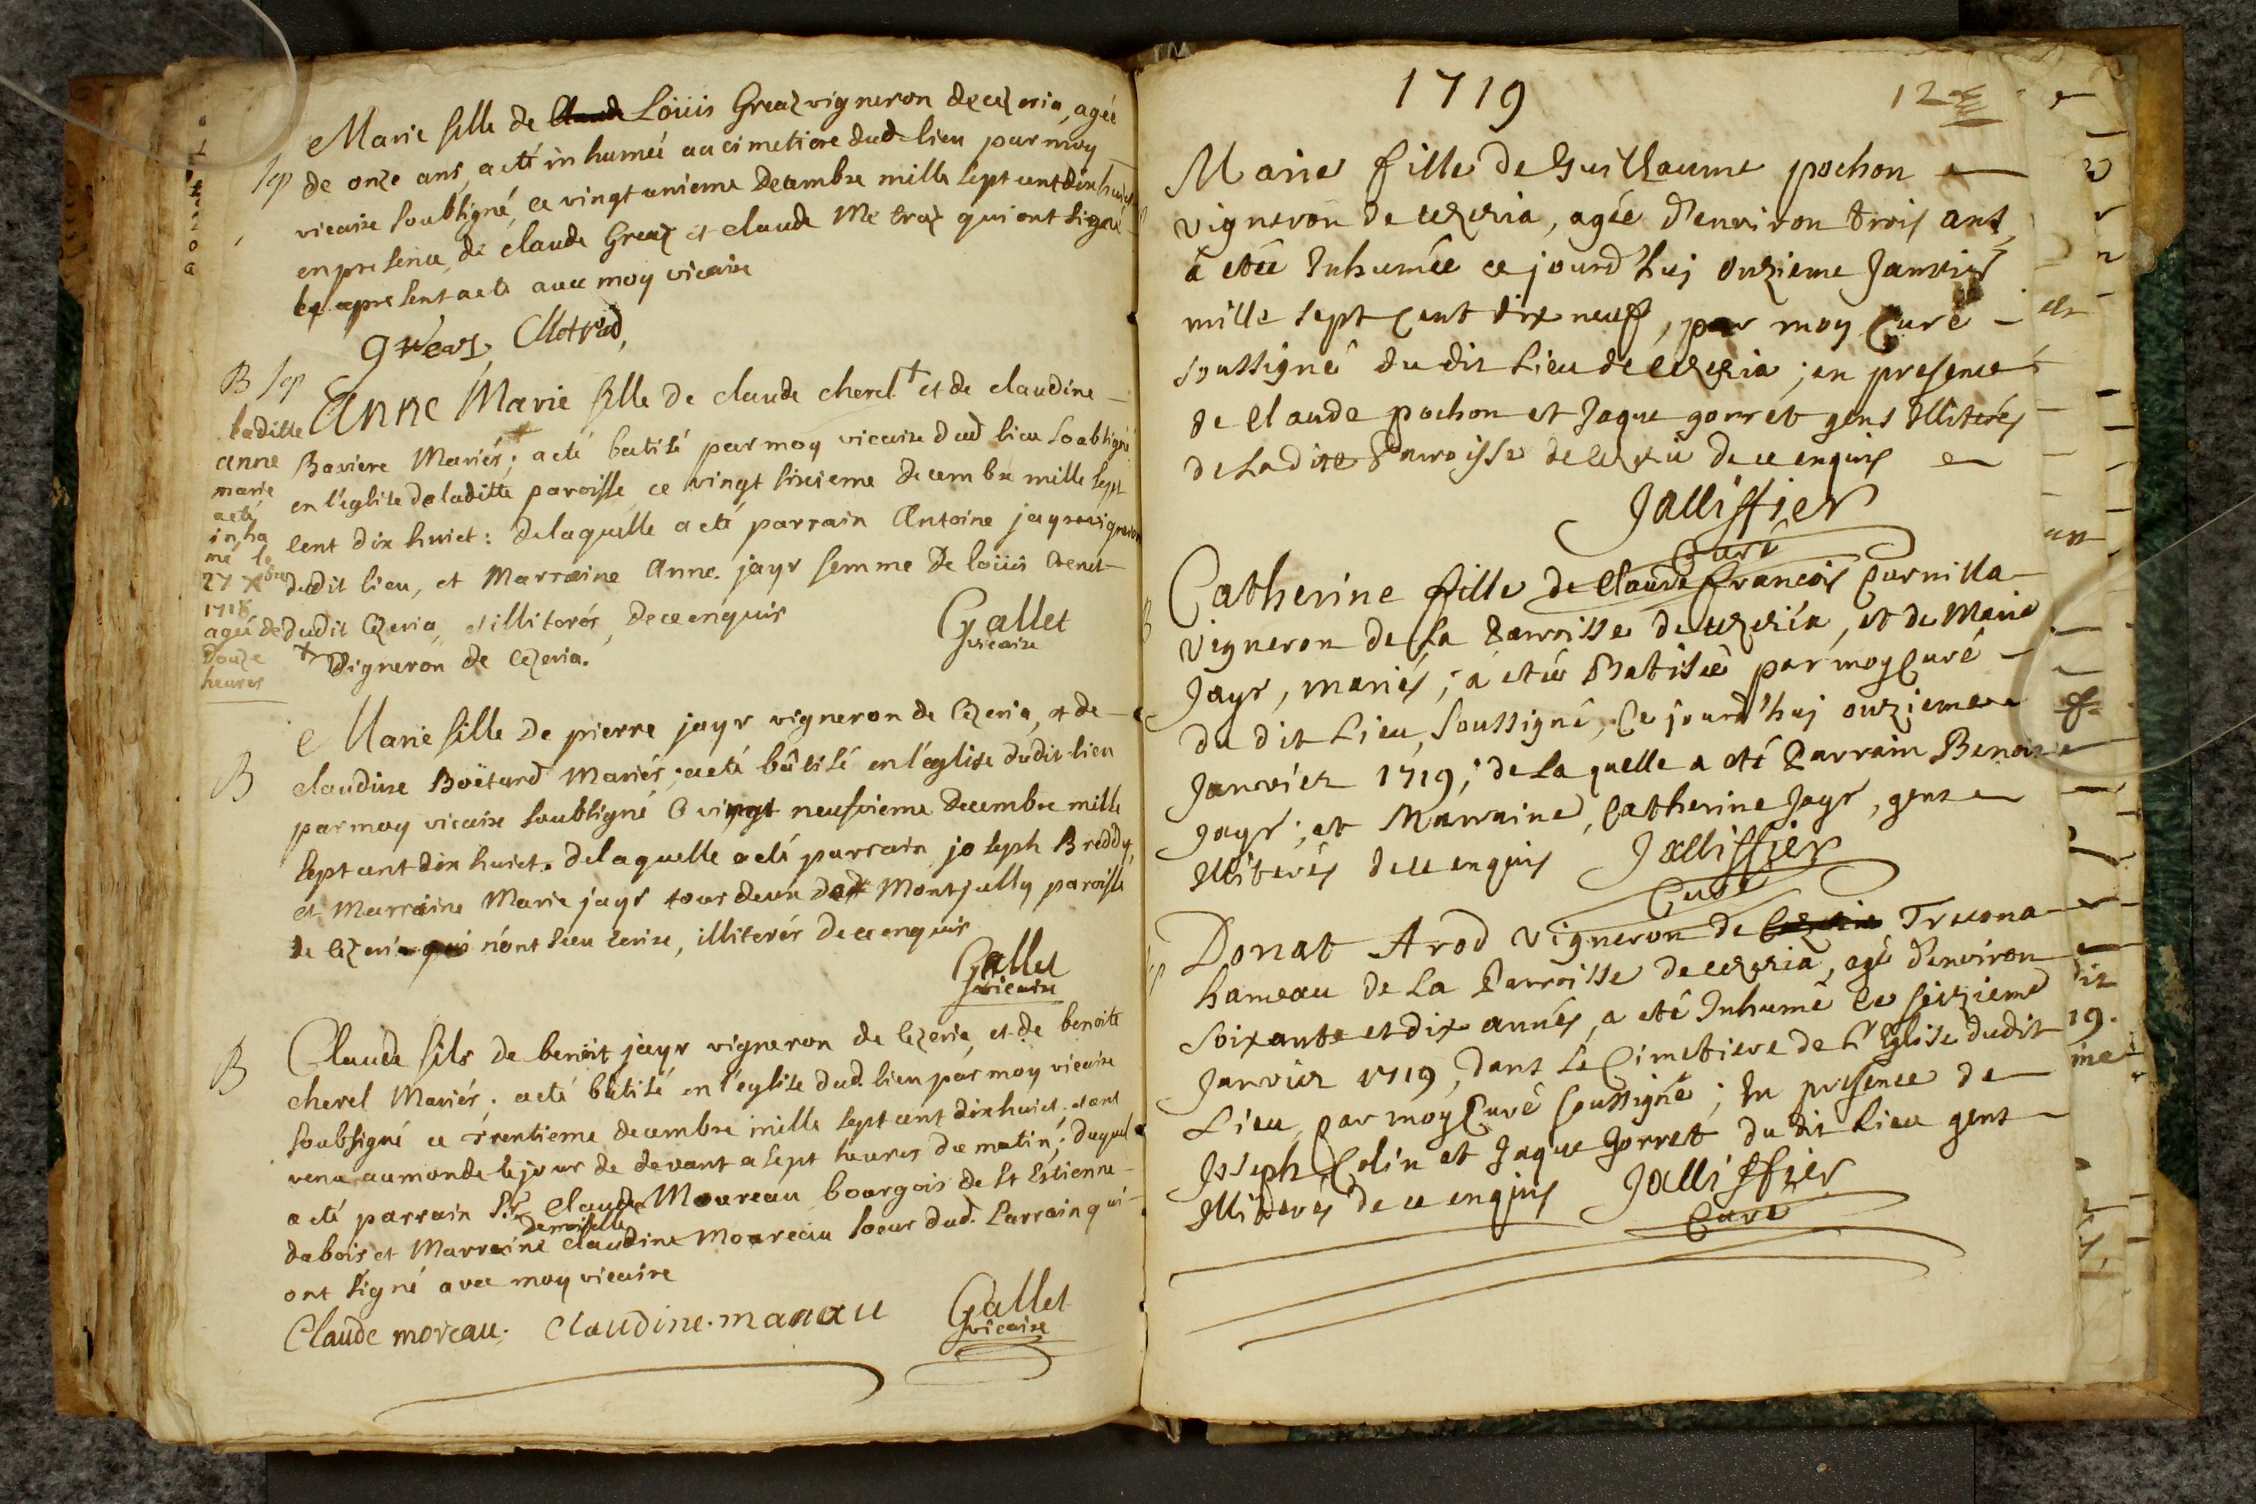 Marie fille de Claude Loüis Greaz vigneron de cezeria, agée
Sep de onze ans, a eté inhumée au cimetiere dud. lieu par moy
vicaire soubsigné, ce vingt unieme decembre mille sept cent dix huict
en presence de claude Greaz et claude Métraz qui ont signé
le present acte avec moy vicaire
greaz, CMetraz,
B Sep
Anne Marie fille de claude cherel + et de claudine
Baviere Mariés; a eté batisé par moy vicaire dud lieu soubsigné
en l'eglise de laditte paroisse ce vingt sixieme decembre mille sept
cent dix huict: de laquelle a eté parrain Antoine jayr vigneron
dudit lieu, et Marraine Anne jayr femme de loüis
dudit Cezeria, et illiterés, de ce enquis
+ Vigneron de Cezeria.
Gallet
vicaire
laditte
anne
marie
a eté
inhu
mé le
27 xbre
1718
agée de
douze
heures
B
Marie fille de pierre jayr vigneron de Cezeria, et de
claudine Boëtard Mariés; a eté bâtisé en l'église dudit lieu
par moy vicaire soubsigné Ce vingt neufvieme decembre mille
sept cent dix huict. de laquelle a eté parrain joseph Breddy,
et Marraine Marie jayr tous deux de Montjully paroisse
de Cezeria qui n'ont sceu ecrire, illiterés de ce enquis
Gallet
vicaire
B
Claude fils de benoit jayr vigneron de Cezeria, et de benoite
cherel Mariés; a eté bâtisé en l'église dud. lieu par moy vicaire
soubsigné ce trentieme decembre mille sept cent dix huict. etant
venu au monde le jour de devant a sept heures du matin; duquel
a eté parrain Sr. Claude Moureau bourgois de St Estienne
demoiselle
dubois et Marraine claudine Moureau soeur dud. Parrain qui
ont signé avec moy vicaire
Claude moreau. Claudine. marau
Gallet
vicaire
1719
12
Marie fille de Guillaume pochon
vigneron de cezeria, agée d'environ trois ans,
a etée Inhumée ce jourd'huj onzieme Janvier
mille sept cent dix neuf, par moy Curé
soussigné du dit Lieu de cezeria; en presence
de Claude pochon et Jaque gorret gens Illiterés
de Ladite Parroisse de cezeria de ce enquis
Jalliffier
Curé
Catherine fille de Claude Francois Curnilla
vigneron de la Parroisse de cezeria, et de Marie
Jayr, mariés; a etée Batisée par moy Curé
du dit Lieu, soussigné, Ce jourd'huj onzieme
Janvier 1719; de Laquelle a eté Parrain Benoit
Jayr; et Marraine, Catherine Jayr, gens
Illiterés de ce enquis
Jalliffier
Curé
Donat Arod vigneron de Cezeria Trecona
hameau de La Parroisse de cezeria, agé d'environ
soixante et dix années, a eté Inhumé Ce seizieme
Janvier 1719, dans Le Cimetiere de L'Eglise dudit
Lieu, par moy Curé soussigné; En presence de
Joseph Colin et Jaque Gorret du dit Lieu gens
Illiterés de ce enquis
Jalliffier
Curé
dit
19.
me